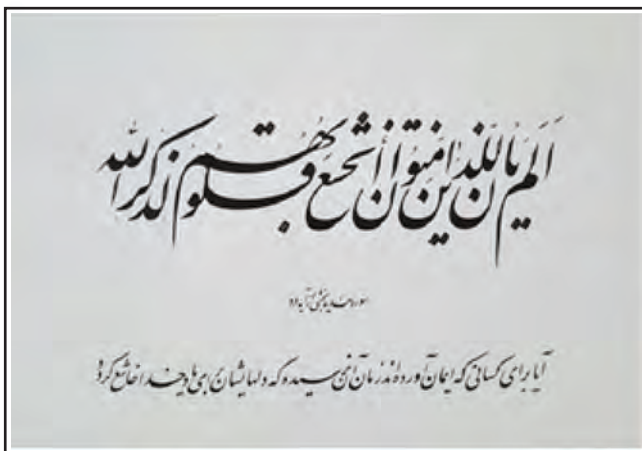 اَلَم یَأنِ لِلَّذینَ امَنوُا أن تَخشَعَ قُلوُبُهُم لِذِکرِ الله
سوره حدید بخشی از آیه ۱۶
آیا برای کسانی که ایمان آورده‌اند زمان آن نرسیده که دلهایشان برای یاد خدا خاشع گردد